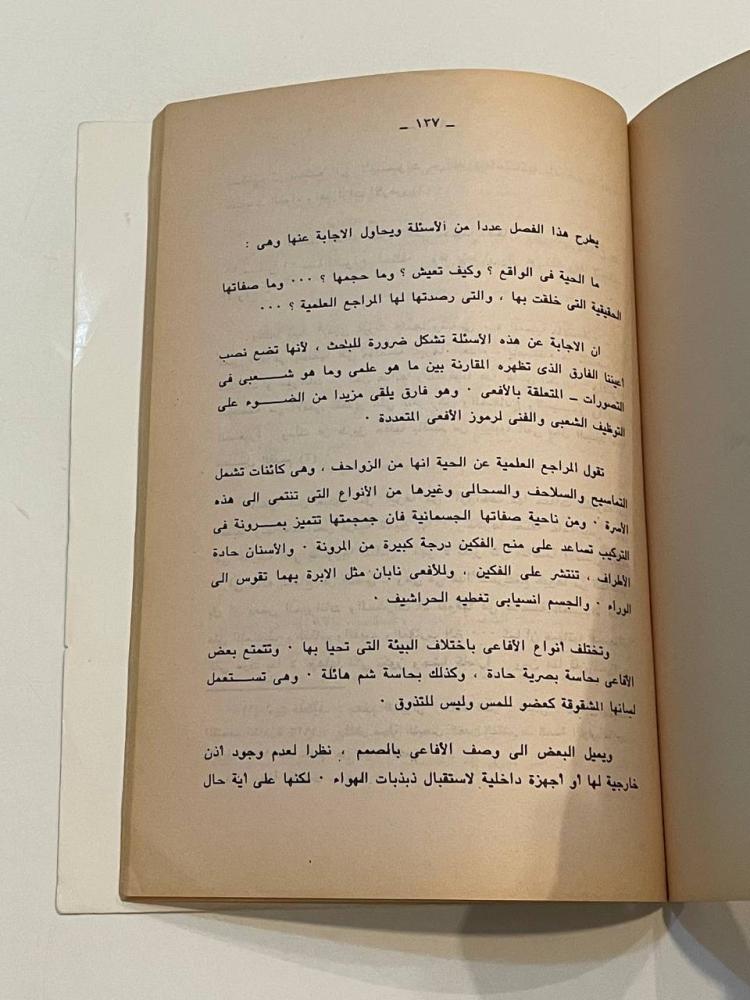 ـ ١٣٧ ـ
يطرح هذا الفصل عددا من الأسئلة ويحاول الاجابة عنها وهى :
ما الحية فى الواقع ؟ وكيف تعيش ؟ وما حجمها ؟ ٠٠٠ وما صفاتها
الحقيقية التى خلقت بها ، والتى رصدتها لها المراجع العلمية ؟ ٠٠٠
ان الاجابة عن هذه الأسئلة تشكل ضرورة للبحث ، لأنها تضع نصب
أعيننا الفارق الذى تظهره المقارنة بين ما هو علمى وما هو شعبى فى
التصورات ـ المتعلقة بالأفعى ٠ وهو فارق يلقى مزيدا من الضوء على
التوظيف الشعبى والفنى لرموز الأفعى المتعددة ٠
تقول المراجع العلمية عن الحية انها من الزواحف ، وهى كائنات تشمل
التماسيح والسلاحف والسحالى وغيرها من الأنواع التى تنتمى الى هذه
الأسرة ٠ ومن ناحية صفاتها الجسمانية فان جمجمتها تتميز بمرونة فى
التركيب تساعد على منح الفكين درجة كبيرة من المرونة ٠ والأسنان حادة
الأطراف ، تنتشر على الفكين ، وللأفعى نابان مثل الابرة بهما تقوس الى
الوراء ٠ والجسم انسيابى تغطيه الحراشيف ٠
وتختلف أنواع الأفاعى باختلاف البيئة التى تحيا بها ٠ وتتمتع بعض
الأفاعى بحاسة بصرية حادة ، وكذلك بحاسة شم هائلة ٠ وهى تستعمل
لسانها المشقوقة كعضو للمس وليس للتذوق ٠
ويميل البعض الى وصف الأفاعي بالصمم ، نظرا لعدم وجود أذن
خارجية لها أو أجهزة داخلية لاستقبال ذبذبات الهواء ٠ لكنها على أية حال